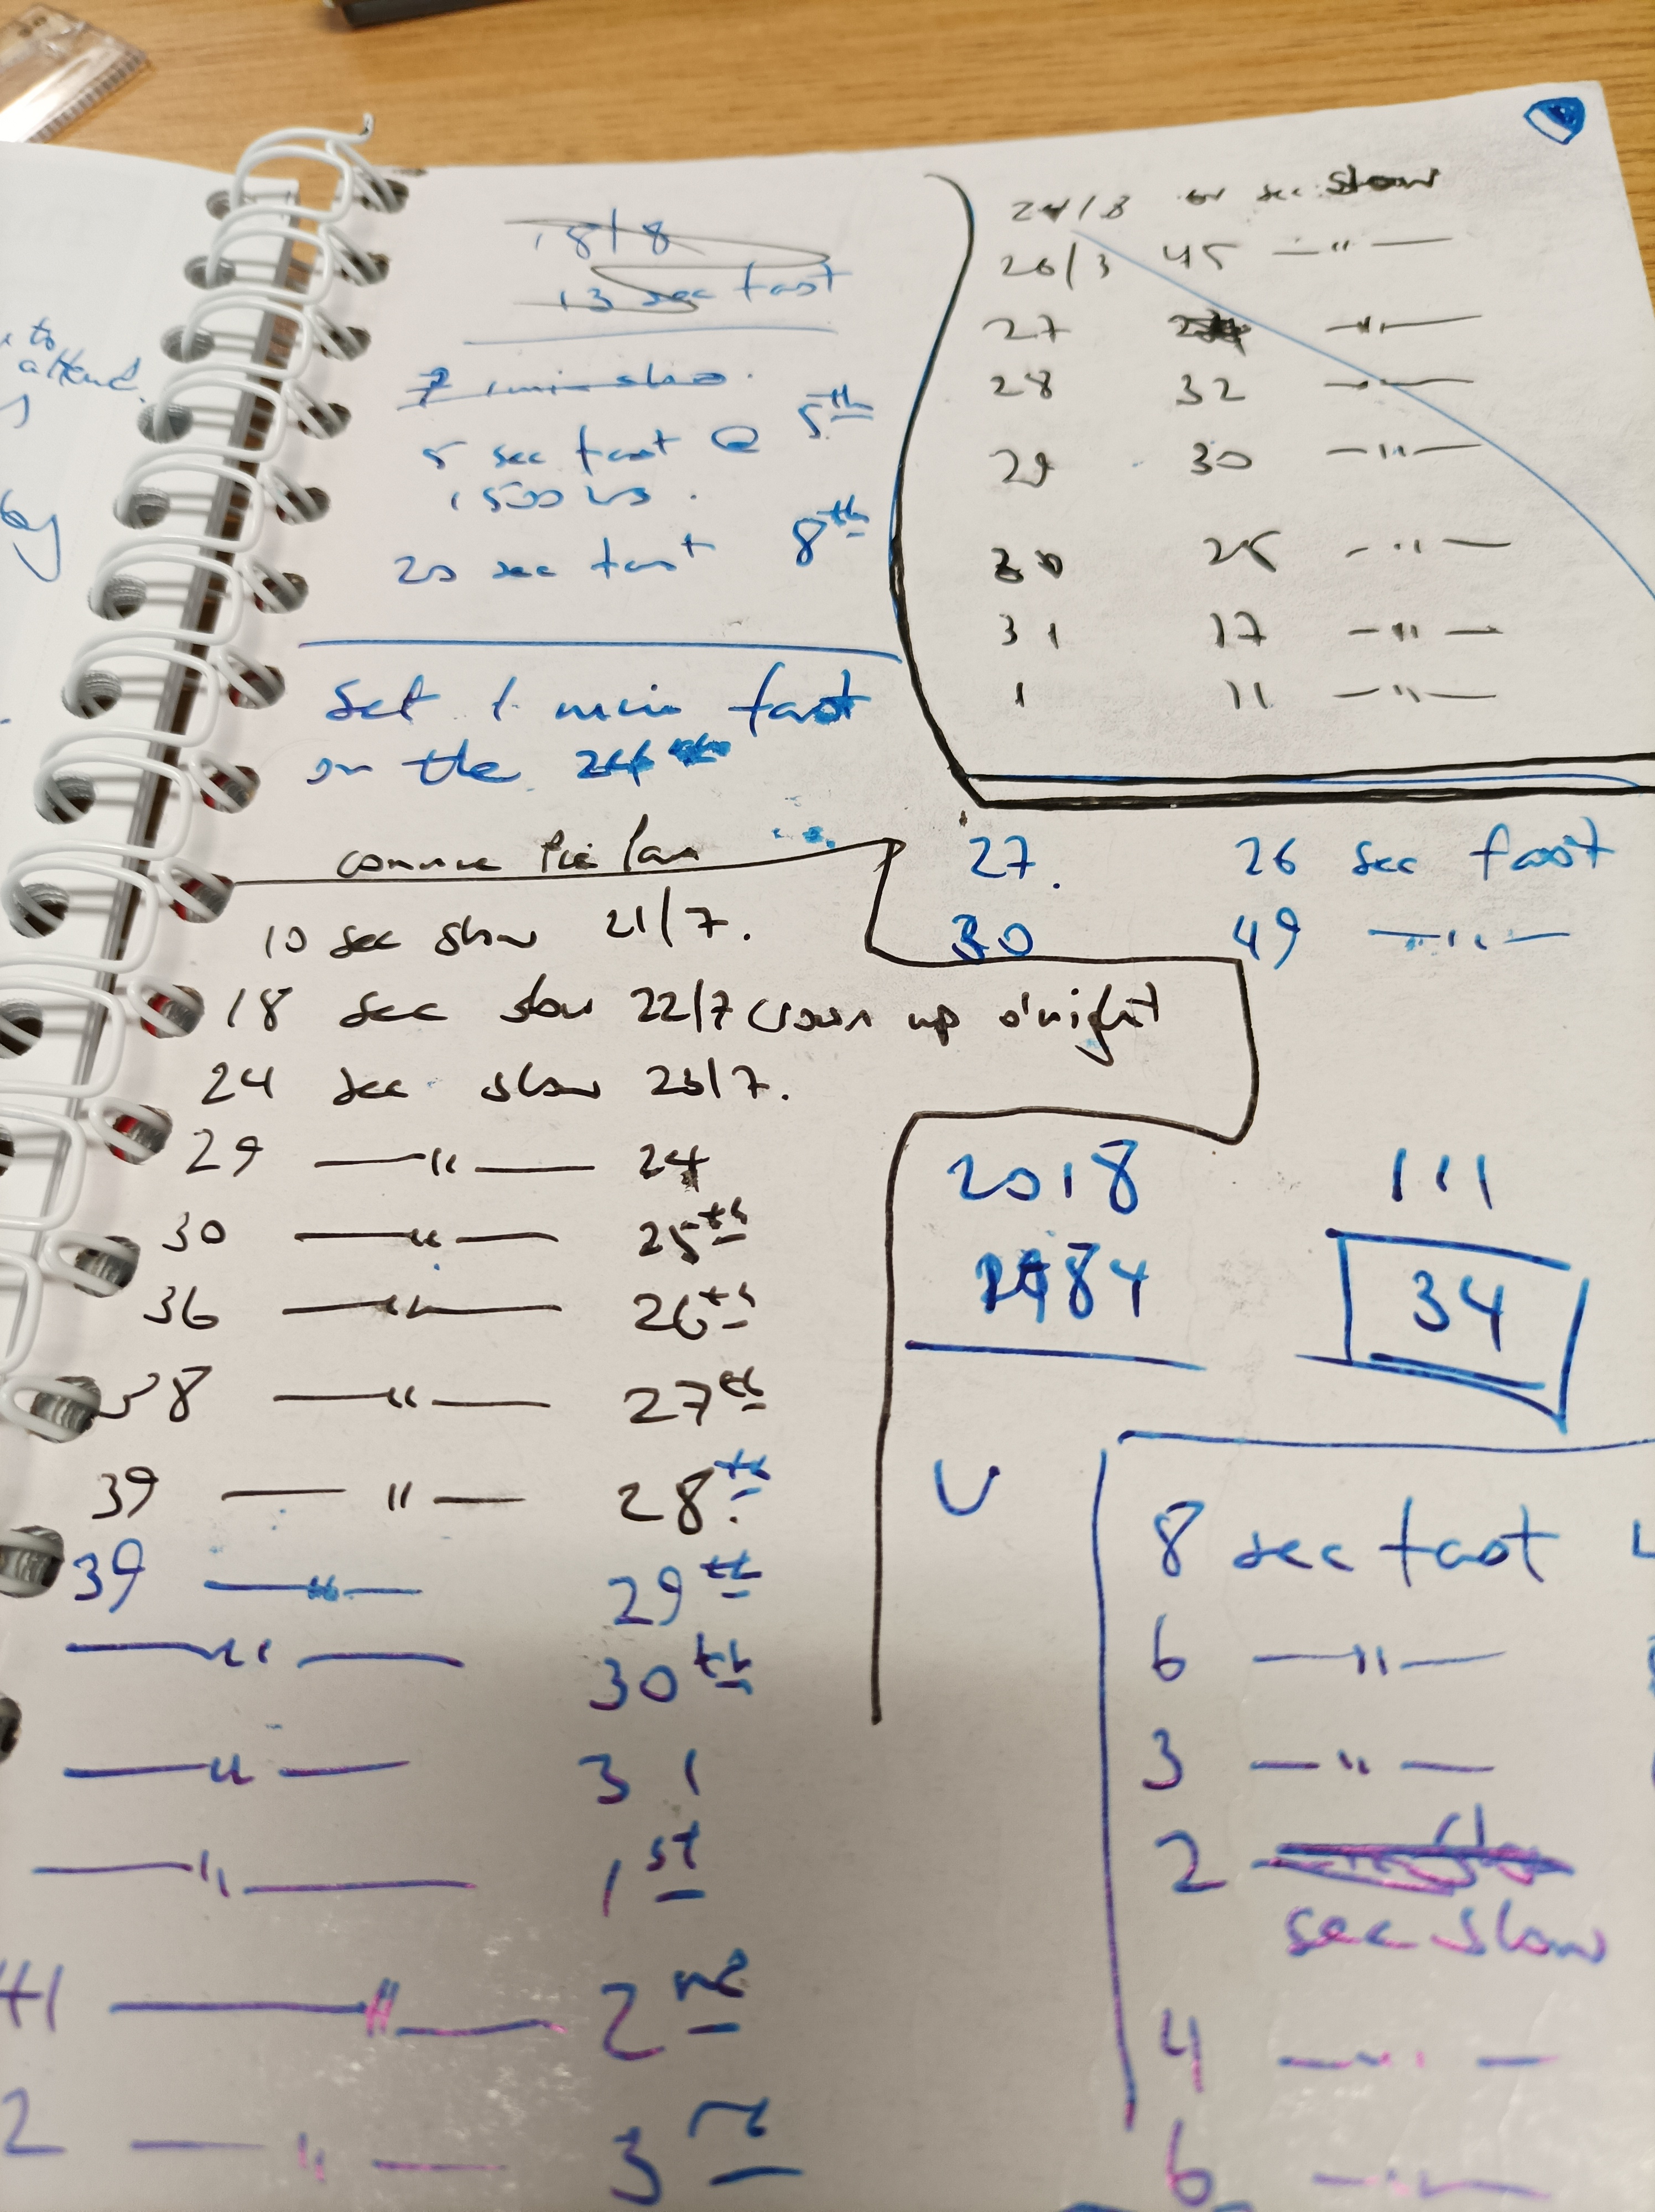 to
attend
by
18/8
13 sec fast
5 sec fast @ 5th
1500 hs.
20 sec fast 8th
Set 1 min fast
on the 24th
10 sec slow 21/7.
18 sec slow 22/7 crown up o'night
24 sec slow 23/7.
29 —"— 24
30 —"— 25th
36 —"— 26th
38 —"— 27th
39 —"— 28th
39 —"— 29th
—"— 30th
—"— 31
—"— 1st
41 —"— 2nd
2 —"— 3rd
sec slow
26/3 45 —"—
27 —"—
28 32 —"—
29 30 —"—
30 25 —"—
31 17 —"—
1 11 —"—
27. 26 sec fast
30 49 —"—
2018 111
1984 34
U
8 sec fast 4
6 —"—
3 —"—
2
sec slow
4 —"—
6 —"—